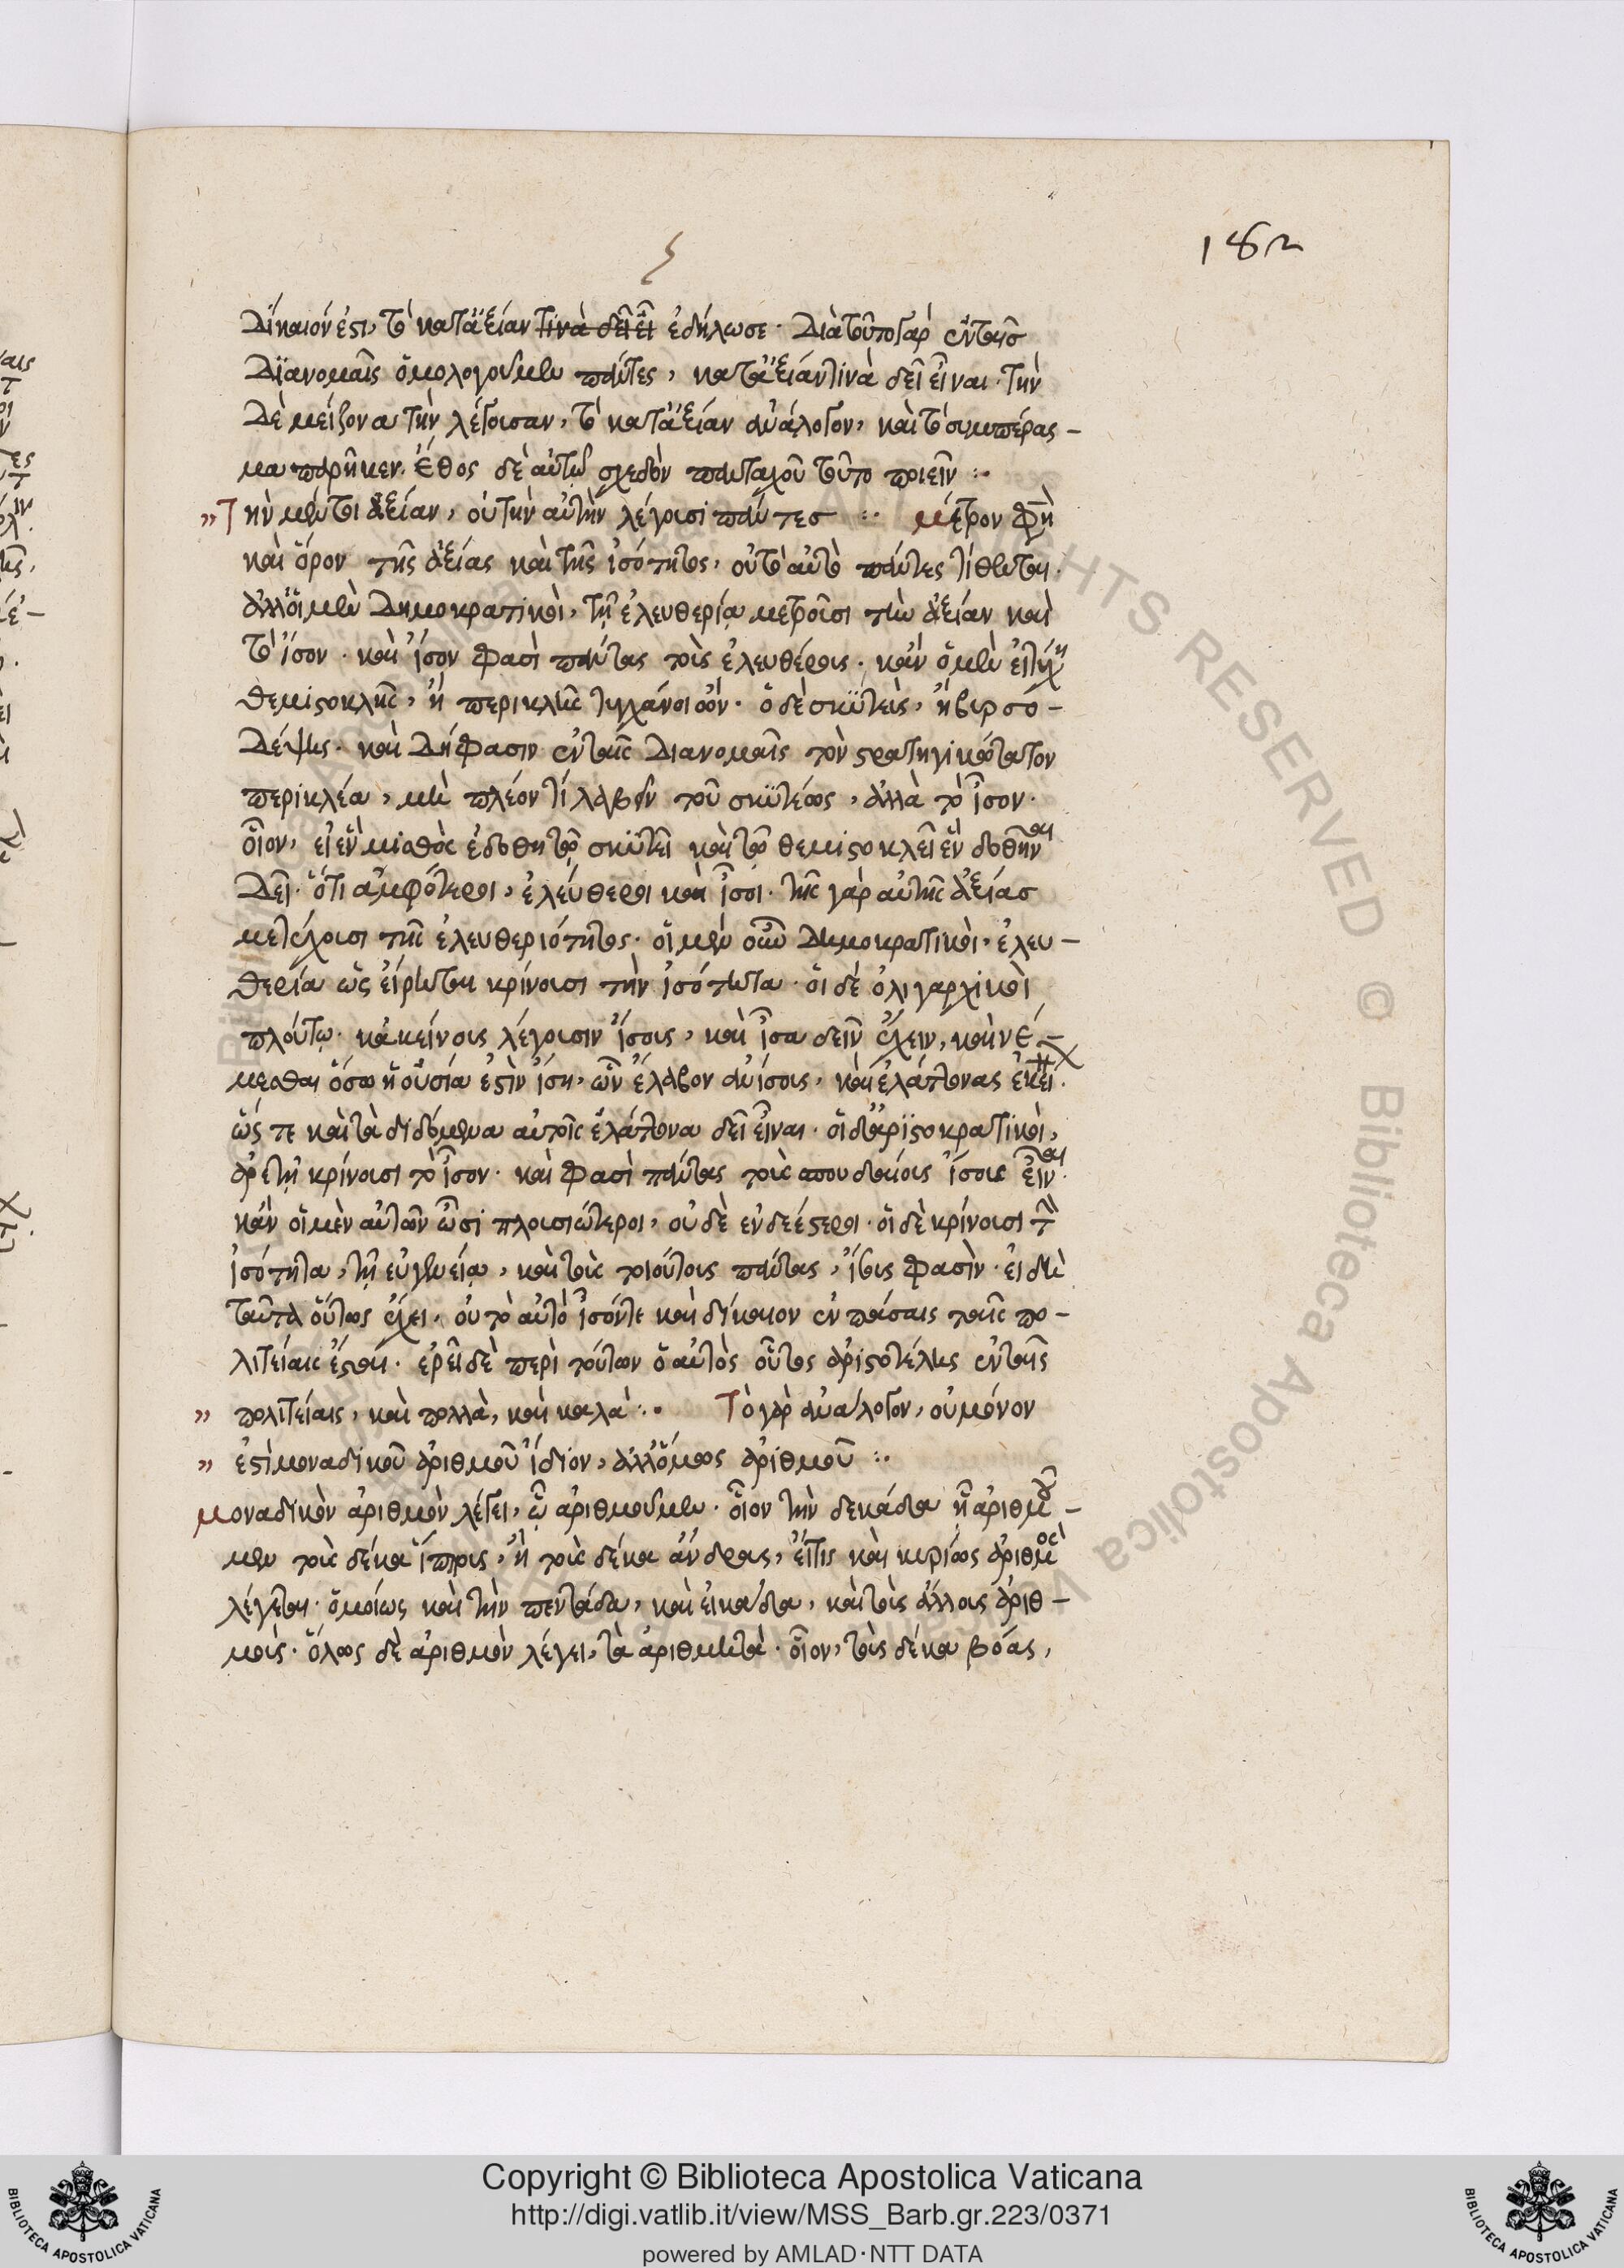 182
Δίκαιόν ἐστι, τὸ κατἀξίαν τινὰ δεῖ εἶ ἐδήλωσε. Διὰ τοῦτο γὰρ ἐν ταῖς
Διανομαῖς ὁμολογοῦμεν πάντες, κατἀξίαν τινὰ δεῖ εἶναι. τὴν
Δὲ μείζονα τὴν λέγουσαν, τὸ κατἀξίαν ἀνάλογον, καὶ τὸ συμπέρας-
μα παρῆκεν. ἔθος δὲ αὐτῷ σχεδὸν πανταχοῦ τοῦτο ποιεῖν :.
" Τὴν μέντοι ἀξίαν, οὐ τὴν αὐτὴν λέγουσι πάντες :. μέτρον φησὶ
καὶ ὅρον τῆς ἀξίας καὶ τῆς ἰσότητος, οὐ τὸ αὐτὸ πάντες τίθενται.
ἀλλοἱ μὲν Δημοκρατικοὶ, τῇ ἐλευθερίᾳ μετροῦσι τὴν ἀξίαν καὶ
τὸ ἴσον. καὶ ἴσον φασὶ πάντας τοὺς ἐλευθέρους. κἂν ὁ μὲν εἰ τύχῃ
θεμιστοκλῆς, ἢ περικλῆς τυγχάνοι ὤν. ὁ δὲ σκϋτεὺς, ἢ βυρσό-
Δέψης. καὶ Δή φασιν ἐν ταῖς Διανομαῖς τὸν στρατηγικώτατον
περικλέα, μὴ πλέον τί λαβεῖν τοῦ σκϋτέως, ἀλλὰ τὸ ἴσον.
οἷον, εἰ ἓν μισθὸς ἐδόθη τῷ σκϋτεῖ καὶ τῷ θεμιστοκλεῖ ἓν δοθῆναι
Δεῖ. ὅτι ἀμφότεροι, ἐλεύθεροι καὶ ἴσοι. τῆς γὰρ αὐτῆς ἀξίας
μετέχουσι τῆς ἐλευθεριότητος. οἱ μὲν οὖν Δημοκρατικοὶ, ἐλευ-
θερία ὡς εἴρηται κρίνουσι τὴν ἰσότητα. οἱ δὲ ὀλιγαρχικοὶ
πλούτῳ. κἀκείνους λέγουσιν ἴσους, καὶ ἴσα δεῖν ἔχειν, καὶ νέ-
μεσθαι ὅσω ἡ οὐσία ἐστὶν ἴση, ὧν ἔλαβον ἀνίσους, καὶ ἐλάττονας ἐκεῖ.
ὥς τε καὶ τὰ διδόμενα αὐτοῖς ἐλάττονα δεῖ εἶναι. οἱ δἀριστοκρατικοὶ,
ἀρετῇ κρίνουσι τὸ ἴσον. καὶ φασὶ πάντας τοὺς σπουδαίους ἴσους εἶναι.
κἂν οἱ μὲν αὐτῶν ὦσι πλουσιώτεροι, οἱ δὲ ἐνδεέστεροι. οἱ δὲ κρίνουσι τὴν
ἰσότητα, τῇ εὐγενείᾳ, καὶ τοὺς τοιούτους πάντας, ἴσους φασὶν. εἰ δὲ
ταῦτα οὕτως ἔχει, οὐ τὸ αὐτὸ ἴσόντε καὶ δίκαιον ἐν πάσαις ταῖς πο-
λιτείαις ἔσται. ἐρεῖ δὲ περὶ τούτων ὁ αὐτὸς οὗτος ἀριστοτέλης ἐν ταῖς
" πολιτείαις, καὶ πολλὰ, καὶ καλὰ :. Τὸ γὰρ ἀνάλογον, οὐ μόνον
" ἐστὶ μοναδικοῦ ἀριθμοῦ ἴδιον, ἀλλὅλως ἀριθμοῦ :.
μοναδικὸν ἀριθμὸν λέγει, ᾧ ἀριθμοῦμεν. οἷον τὴν δεκάδα ᾗ ἀριθμοῦ-
μεν τοὺς δέκα ἵππους, ἢ τοὺς δέκα ἄνδρας, εἵτις καὶ κυρίως ἀριθμὸς
λέγεται. ὁμοίως καὶ τὴν πεντάδα, καὶ εἰκάδα, καὶ τοὺς ἄλλους ἀριθ-
μοὺς. ὅλως δὲ ἀριθμὸν λέγει, τὰ ἀριθμητὰ. οἷον, τοὺς δέκα βόας,
Copyright © Biblioteca Apostolica Vaticana
http://digi.vatlib.it/view/MSS_Barb.gr.223/0371
powered by AMLAD·NTT DATA